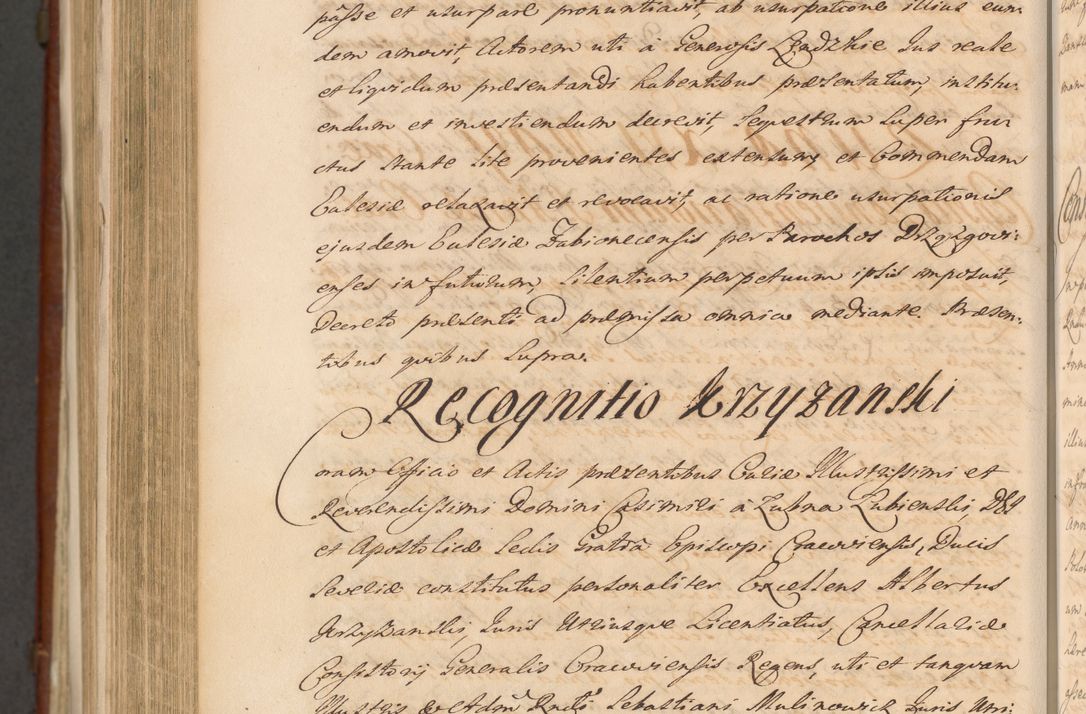 passe et usurpare pronuntiavit, ab usurpatione illius eun:
dem amovit, Actorem uti à Generosis Lędzkie Jus reale
et liqvidum præsentandi habentibus præsentatum, institu:
endum et investiendum decrevit, Seqvestrum super fru:
ctus stante lite provenientes extensum, et Commendam
Ecclesiæ relaxavit et revocavit, ac ratione usurpationis
ejusdem Ecclesiæ Fabionecensis per Parochos Drzązgovi:
enses in futurum, silentium perpetuum ipsis imposuit,
Decreto præsenti ad præmissa omnia mediante. Præsen:
tibus qvibus supra.
Recognitio Krzyzanski
Coram Officio et Actis præsentibus Curiæ Illustrissimi et
Reverendissimi Domini Casimiri à Łubna Łubienski, D&S
et Apostolicæ Sedis Gratia Episcopi Cracoviensis, Ducis
Severiæ constitutus personaliter Excellens Albertus
Krzyżanski, Juris Utriusqve Licentiatus, Cancellariæ
Consistorij Generalis Cracoviensis Regens, uti et tanqvam
Illustris et Adm Rndi Sebastiani Malinowicz Juris Utri: